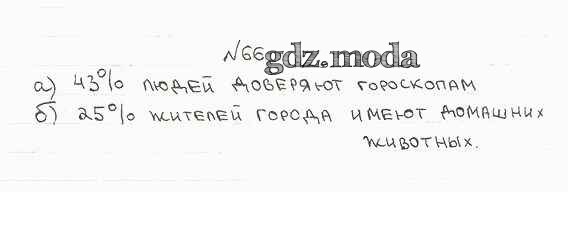 №66
gdz.moda
а) 43% людей доверяют гороскопам
б) 25% жителей города имеют домашних
животных.